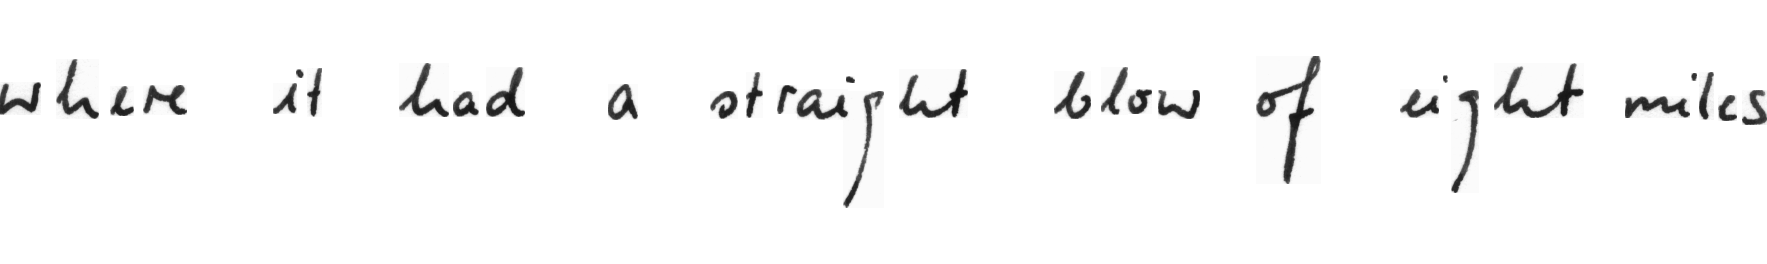 where it had a straight blow of eight miles